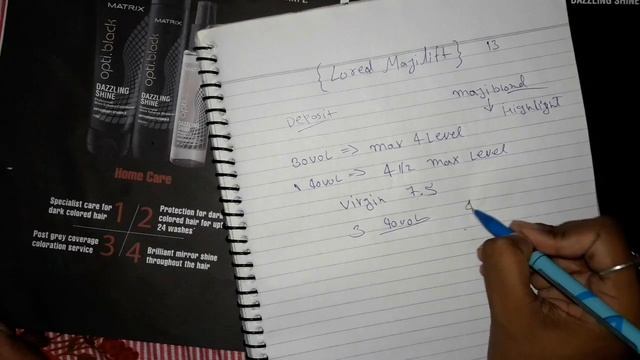 MATRIX
MATRIX
opti.black
opti.black
DAZZLING
SHINE
DAZZLING
SHINE
Home Care
Specialist care for
dark colored hair
1
2
Protection for dark
colored hair for up
24 washes*
Post grey coverage
coloration service
3
4
Brilliant mirror shine
throughout the hair
DAZZLING SHINE
{Loreal Majilift} 13
Deposit
majiblond
↓ Highlight
30vol => max 4 Level
40vol => 4 1/2 max Level
Virgin 7.3
3 40vol 4